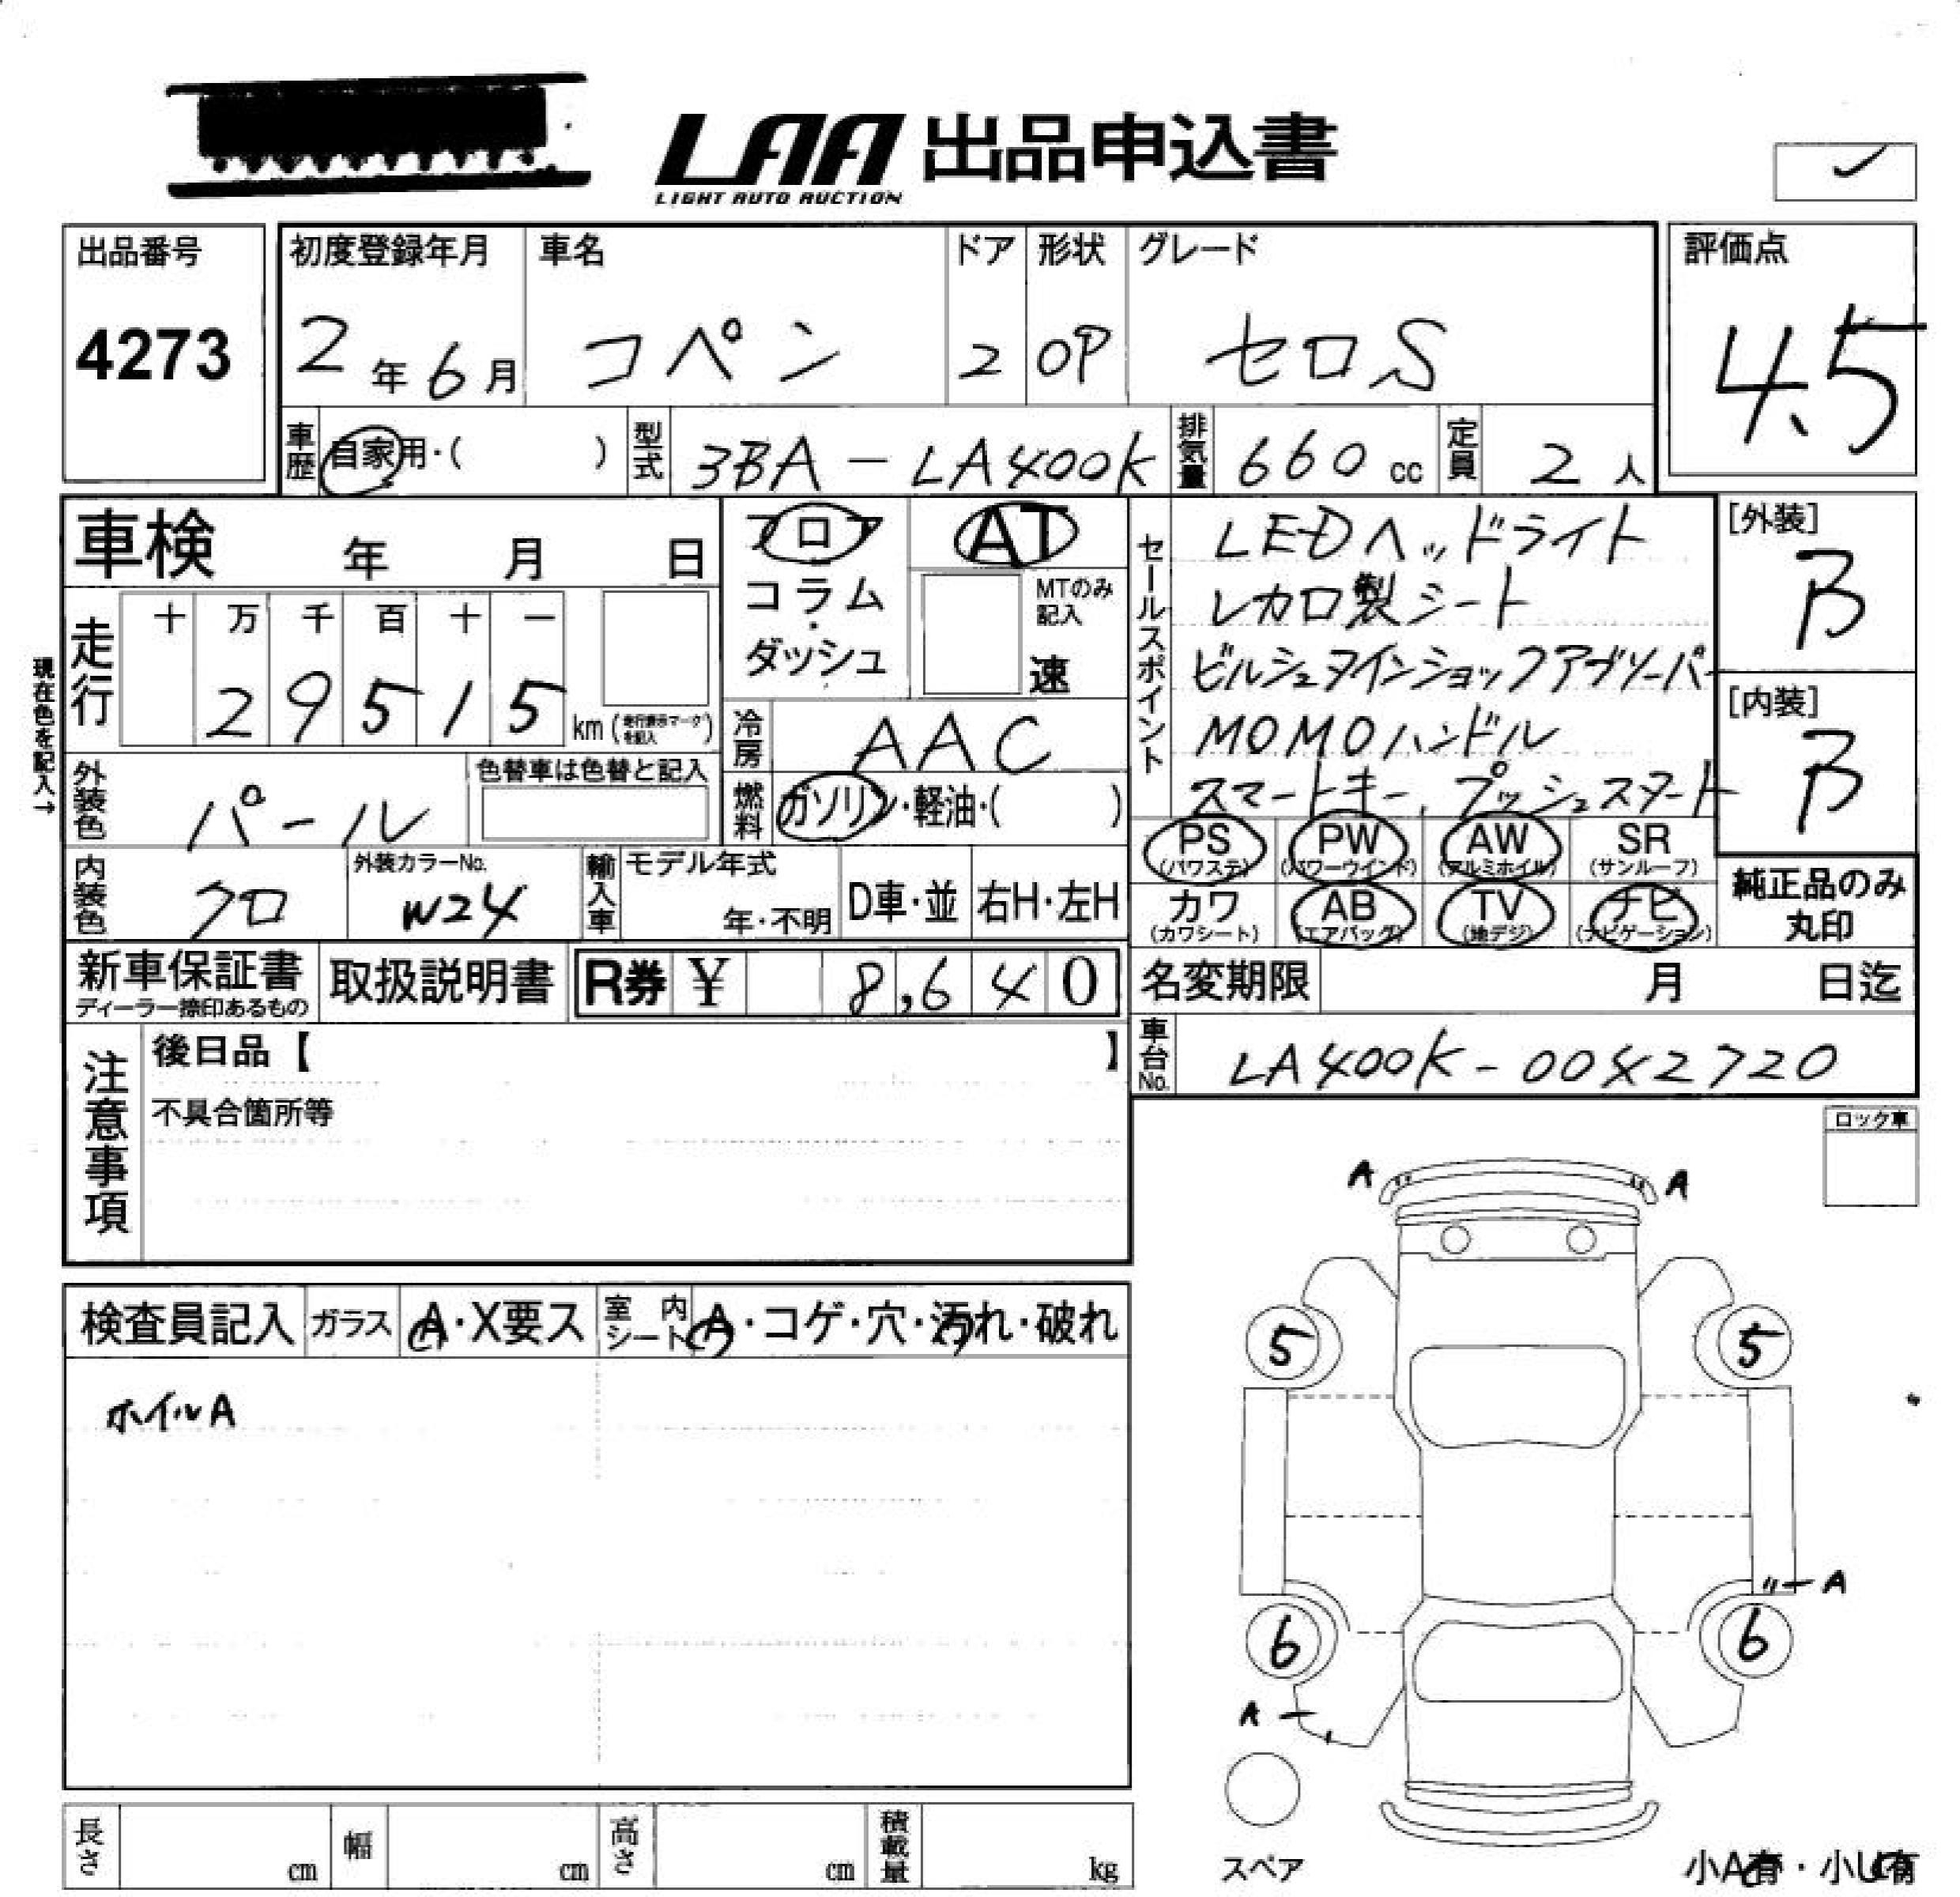 LAA 出品申込書
LIGHT AUTO AUCTION
出品番号
4273
初度登録年月
2年6月
車名
コペン
ドア
2
形状
OP
グレード
セロS
評価点
4.5
車歴
自家用・( )
型式
3BA-LA400K
排気量
660cc
定員
2人
車検 年 月 日
現在色を記入→
走行
十 万 千 百 十 一
2 9 5 1 5
km (走行表示マークを記入)
フロア
コラム
・
ダッシュ
AT
MTのみ
記入
速
冷房
AAC
燃料
ガソリン・軽油・( )
外装色
パール
色替車は色替と記入
内装色
クロ
外装カラーNo.
W24
輸入車
モデル年式
年・不明
D車・並
右H・左H
セールスポイント
LEDヘッドライト
レカロ製シート
ビルシュタインショックアブソーバー
MOMOハンドル
スマートキー、プッシュスタート
[外装]
B
[内装]
B
PS
(パワステ)
PW
(パワーウインド)
AW
(アルミホイル)
SR
(サンルーフ)
カワ
(カワシート)
AB
(エアバッグ)
TV
(地デジ)
ナビ
(ナビゲーション)
純正品のみ
丸印
新車保証書
ディーラー捺印あるもの
取扱説明書
R券 ¥ 8,640
名変期限 月 日迄
車台No.
LA400K-0042720
注意事項
後日品【 】
不具合箇所等
ロック車
検査員記入
ガラス
A・X要ス
室内
シート
A・コゲ・穴・汚れ・破れ
ホイルA
A A
5 5
A
6 6
A
スペア
長さ cm
幅 cm
高さ cm
積載量 kg
小A有・小U有